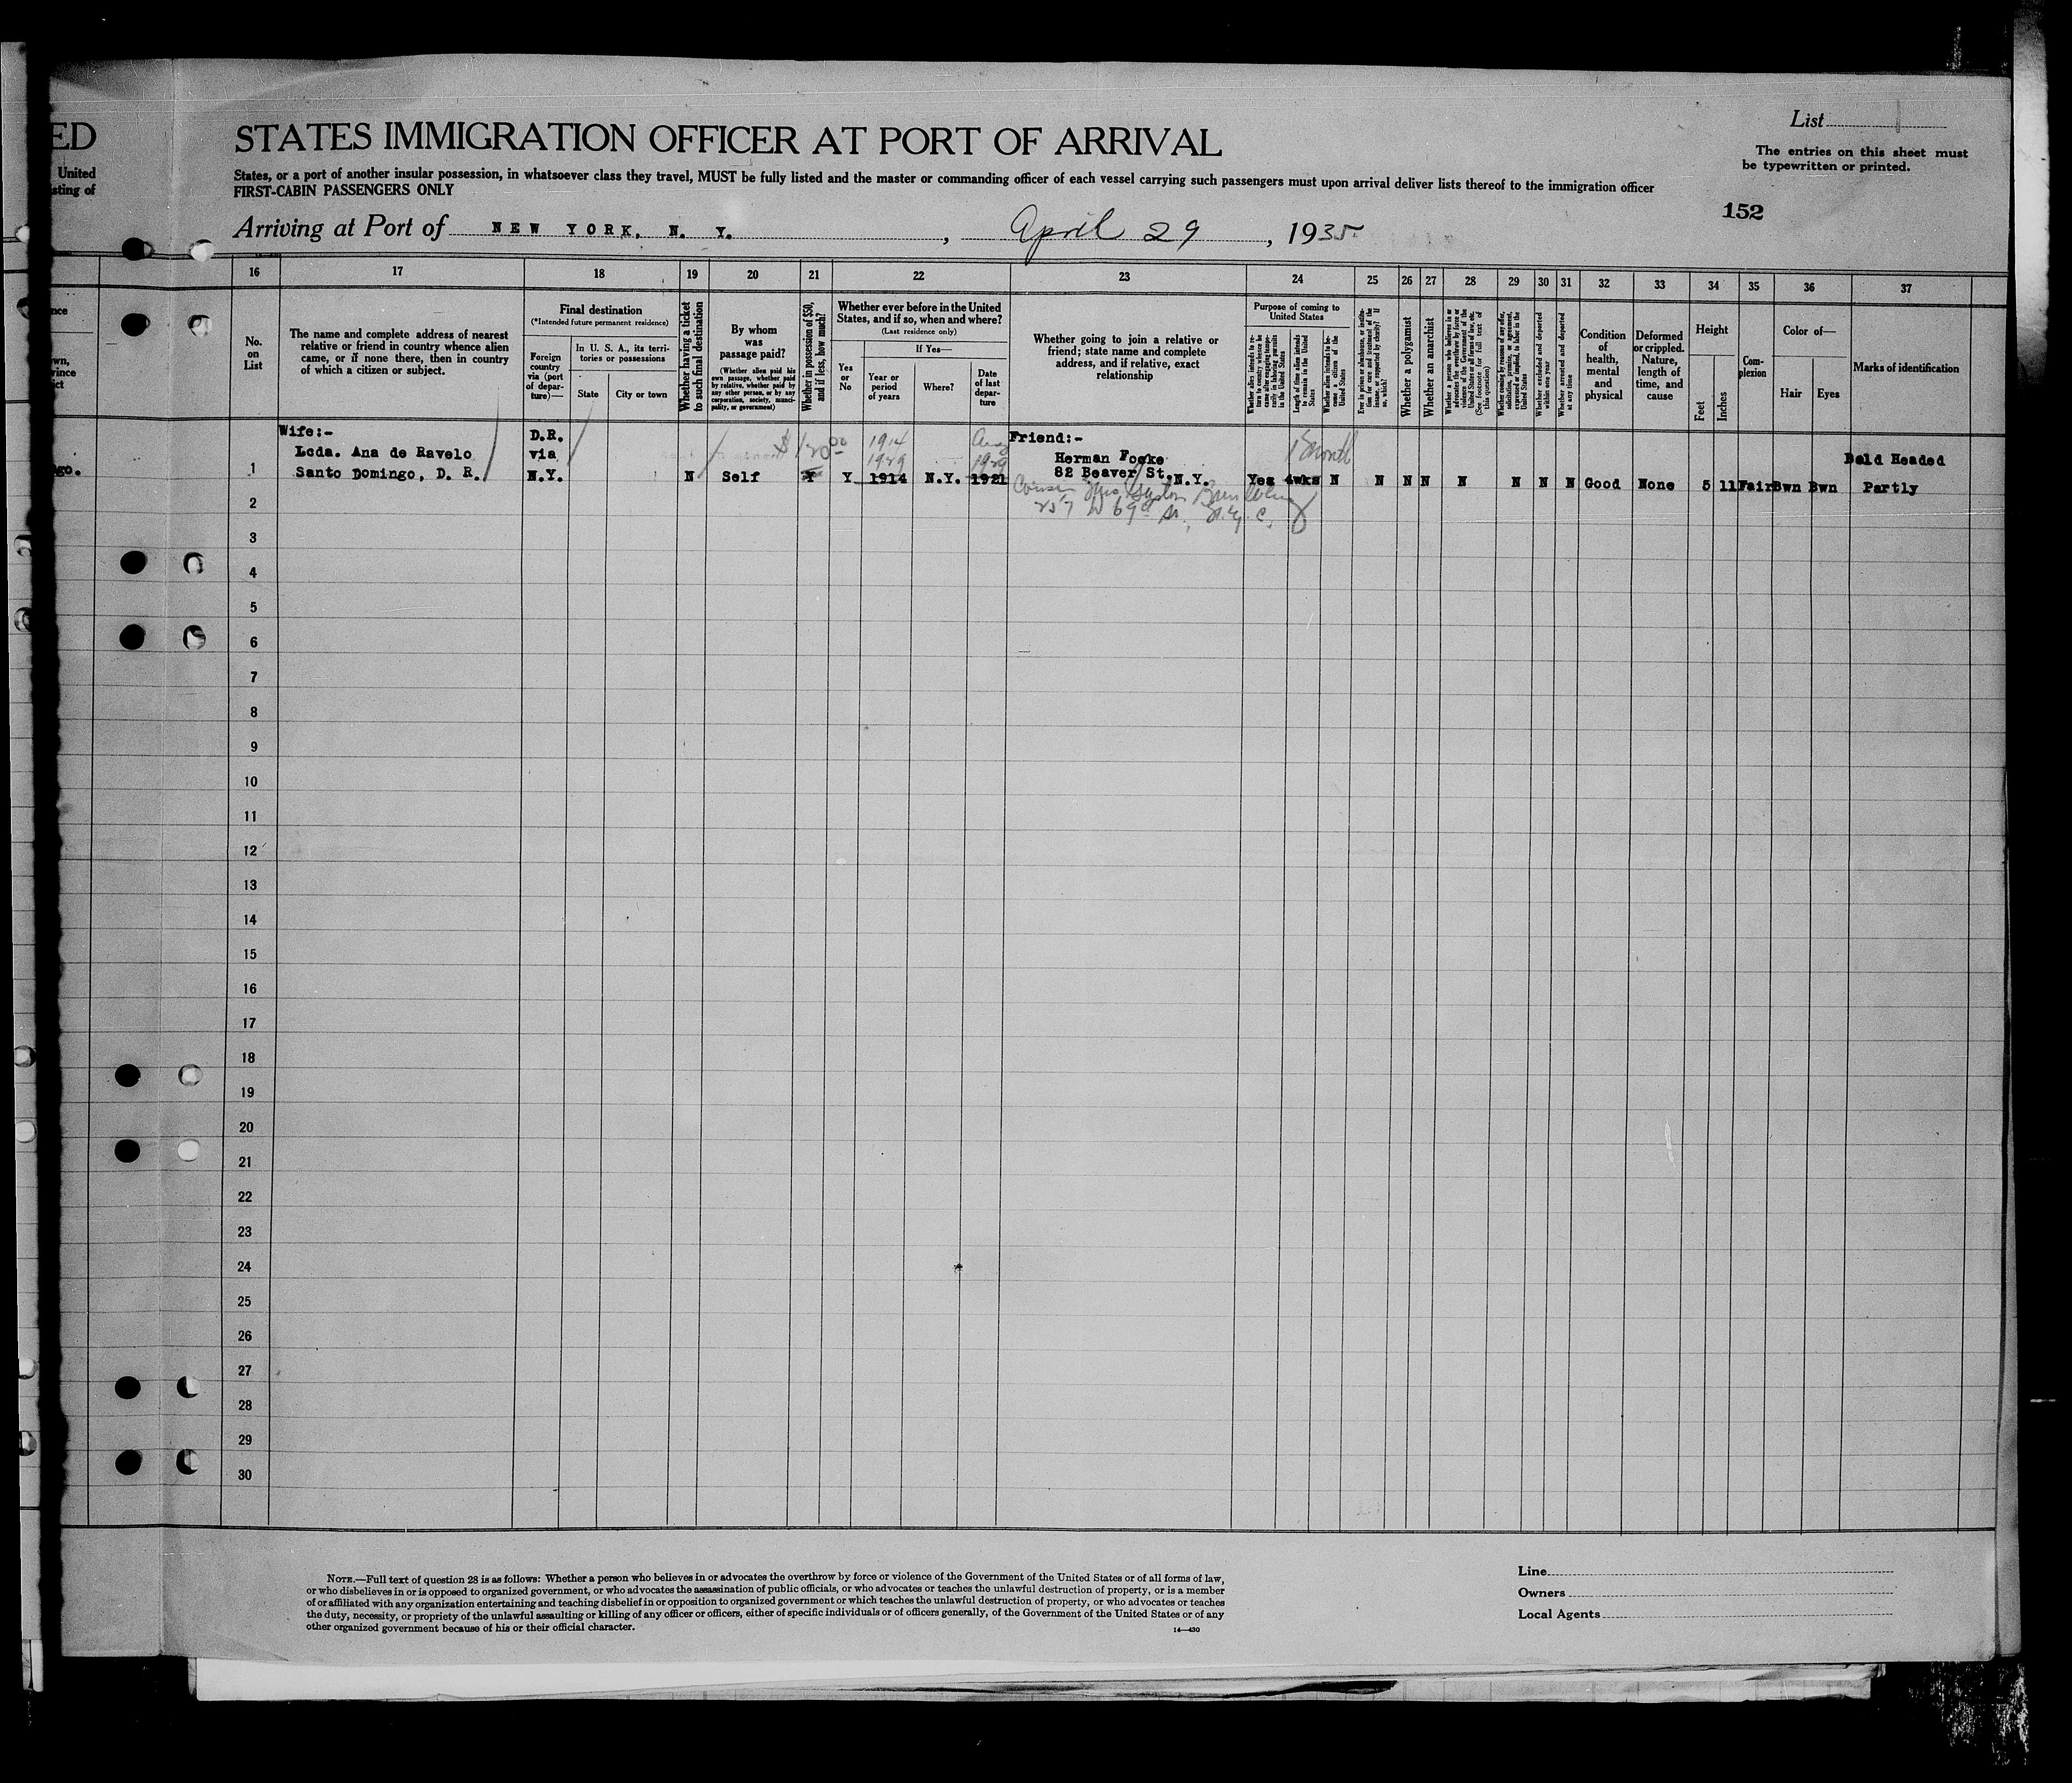 ED
United
sting of
STATES IMMIGRATION OFFICER AT PORT OF ARRIVAL
States, or a port of another insular possession, in whatsoever class they travel, MUST be fully listed and the master or commanding officer of each vessel carrying such passengers must upon arrival deliver lists thereof to the immigration officer
FIRST-CABIN PASSENGERS ONLY
List
The entries on this sheet must
be typewritten or printed.
152
Arriving at Port of NEW YORK, N. Y. , April 29 , 1935
16 17 18 19 20 21 22 23 24 25 26 27 28 29 30 31 32 33 34 35 36 37
No.
on
List
The name and complete address of nearest
relative or friend in country whence alien
came, or if none there, then in country
of which a citizen or subject.
Final destination
(*Intended future permanent residence)
Foreign
country
via (port
of depar-
ture)—
In U. S. A., its terri-
tories or possessions
State
City or town
Whether having a ticket
to such final destination
By whom
was
passage paid?
(Whether alien paid his
own passage, whether paid
by relative, whether paid by
any other person, or by any
corporation, society, munici-
pality, or government)
Whether in possession of $50,
and if less, how much?
Whether ever before in the United
States, and if so, when and where?
(Last residence only)
Yes
or
No
If Yes—
Year or
period
of years
Where?
Date
of last
depar-
ture
Whether going to join a relative or
friend; state name and complete
address, and if relative, exact
relationship
Purpose of coming to
United States
Whether alien intends to re-
turn to country whence he
came after engaging tempo-
rarily in laboring pursuits
in the United States
Length of time alien intends
to remain in the United
States
Whether alien intends to be-
come a citizen of the
United States
Ever in prison or almshouse, or institu-
tion for care and treatment of the
insane, or supported by charity? If
so, which?
Whether a polygamist
Whether an anarchist
Whether a person who believes in or
advocates the overthrow by force or
violence of the Government of the
United States or all forms of law, etc.
(See footnote for full text of
this question)
Whether coming by reason of any offer,
solicitation, promise, or agreement,
expressed or implied, to labor in the
United States
Whether excluded and deported
within one year
Whether arrested and deported
at any time
Condition
of
health,
mental
and
physical
Deformed
or crippled.
Nature,
length of
time, and
cause
Height
Feet
Inches
Com-
plexion
Color of—
Hair
Eyes
Marks of identification
Wife:-
Lcda. Ana de Ravelo
Santo Domingo, D. R.
D.R.
via
N.Y.
N
Self
$120.00
Y
Y
1914
1929
1914
N.Y.
Aug
1929
1921
Friend:-
Herman Focke
82 Beaver St., N.Y.
Cousin Mrs.
257 W 69 St., N.Y.C.
Yes 4wks N
1 month
N N N N N N N Good None 5 11 Fair Bwn Bwn
Bald Headed
Partly
go.
1
2
3
4
5
6
7
8
9
10
11
12
13
14
15
16
17
18
19
20
21
22
23
24
25
26
27
28
29
30
NOTE.—Full text of question 28 is as follows: Whether a person who believes in or advocates the overthrow by force or violence of the Government of the United States or of all forms of law,
or who disbelieves in or is opposed to organized government, or who advocates the assassination of public officials, or who advocates or teaches the unlawful destruction of property, or is a member
of or affiliated with any organization entertaining and teaching disbelief in or opposition to organized government or which teaches the unlawful destruction of property, or who advocates or teaches
the duty, necessity, or propriety of the unlawful assaulting or killing of any officer or officers, either of specific individuals or of officers generally, of the Government of the United States or of any
other organized government because of his or their official character.
14—430
Line
Owners
Local Agents